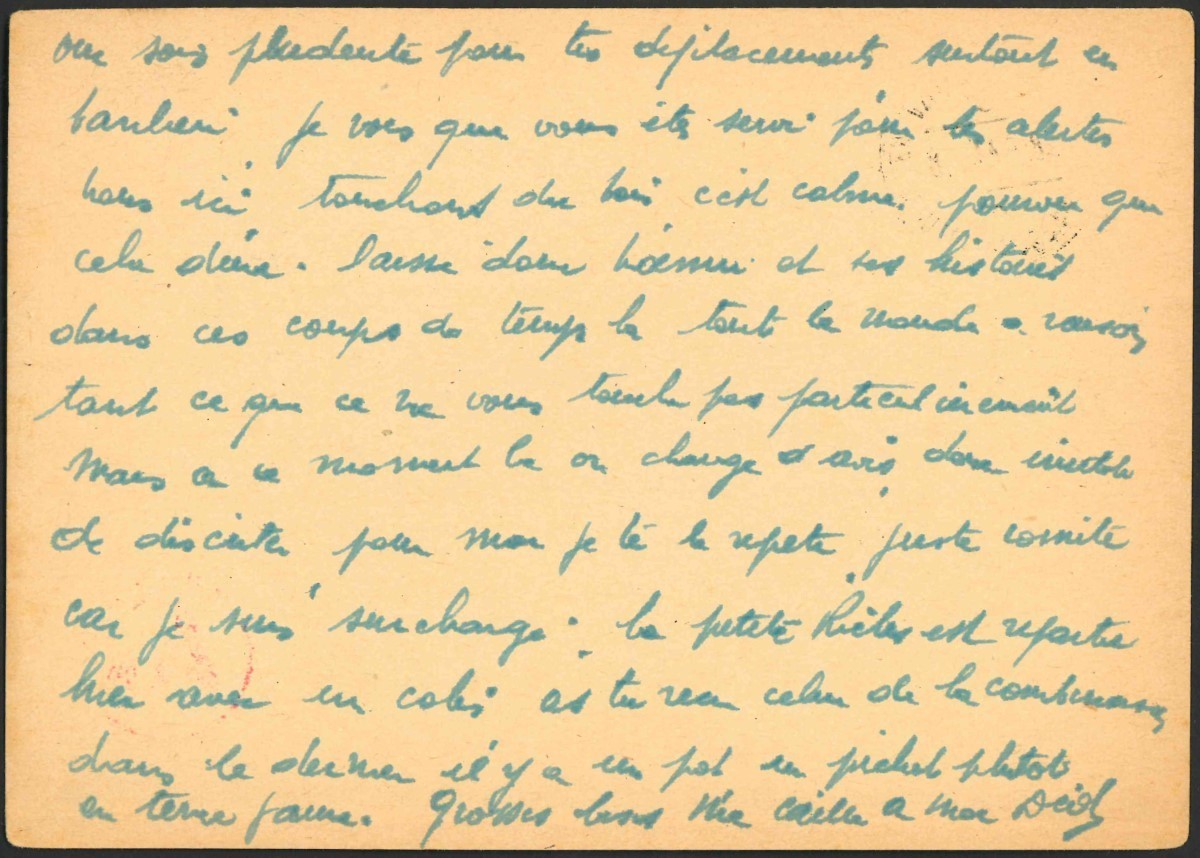 sois prudente pour tes deplacements surtout en
banlieu Je vois que vous ete servi pour les alertes
nous ici touchons du bois c'est calme. pourvu que
cela dure. laisse donc et ses histoires
dans ces coups de temps la tout le monde a raison
tant ce que ce ne vous touche pas particulierement
Mais a ce moment la on change d'avis donc inutile
de discuter pour moi je te le repete juste comite
car je suis surchargé. la petite est repartie
hier avec un colis as tu recu celui de la combinaison
dans le dernier il y a un pot un pichet plutot
en terre jaune. Grosses bises Mia a mon